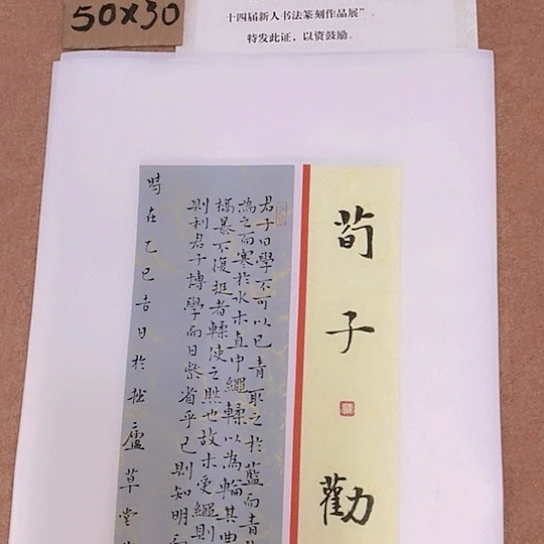 50×30
十四届新人书法篆刻作品展”
特发此证，以资鼓励。
荀子勸
君子曰學不可以已青取之於藍而青
為之而寒於水木直中繩輮以為輪其曲
槁暴不復挺者輮使之然也故木受繩則
則利君子博學而日參省乎己則知明
時在乙巳吉日於松廬草堂